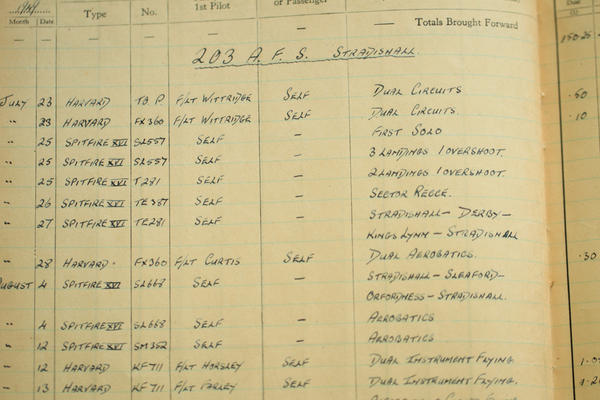 1949
Month Date Type No. 1st Pilot or Passenger
Totals Brought Forward
— — — — — —
203 A. F. S. STRADISHALL
JULY 23 HARVARD TO P. F/LT WITTRIDGE SELF DUAL CIRCUITS .50
" 23 HARVARD FX360 F/LT WITTRIDGE SELF DUAL CIRCUITS. .10
" 25 SPITFIRE XVI SL557 SELF — FIRST SOLO
" 25 SPITFIRE XVI SL557 SELF — 3 LANDINGS 1 OVERSHOOT.
" 25 SPITFIRE XVI T281 SELF — 2 LANDINGS 1 OVERSHOOT.
" 26 SPITFIRE XVI TE387 SELF — SECTOR RECCE.
" 27 SPITFIRE XVI TE281 SELF — STRADISHALL — DERBY —
KINGS LYNN — STRADISHALL
" 28 HARVARD FX360 F/LT CURTIS SELF DUAL AEROBATICS. .30
AUGUST 4 SPITFIRE XVI SL668 SELF — STRADISHALL — SLEAFORD —
ORFORDNESS — STRADISHALL.
" 4 SPITFIRE XVI SL668 SELF — AEROBATICS
" 12 SPITFIRE XVI SM352 SELF — AEROBATICS
" 12 HARVARD KF711 F/LT HORSLEY SELF DUAL INSTRUMENT FLYING.
" 13 HARVARD KF711 F/LT SELF DUAL INSTRUMENT FLYING.